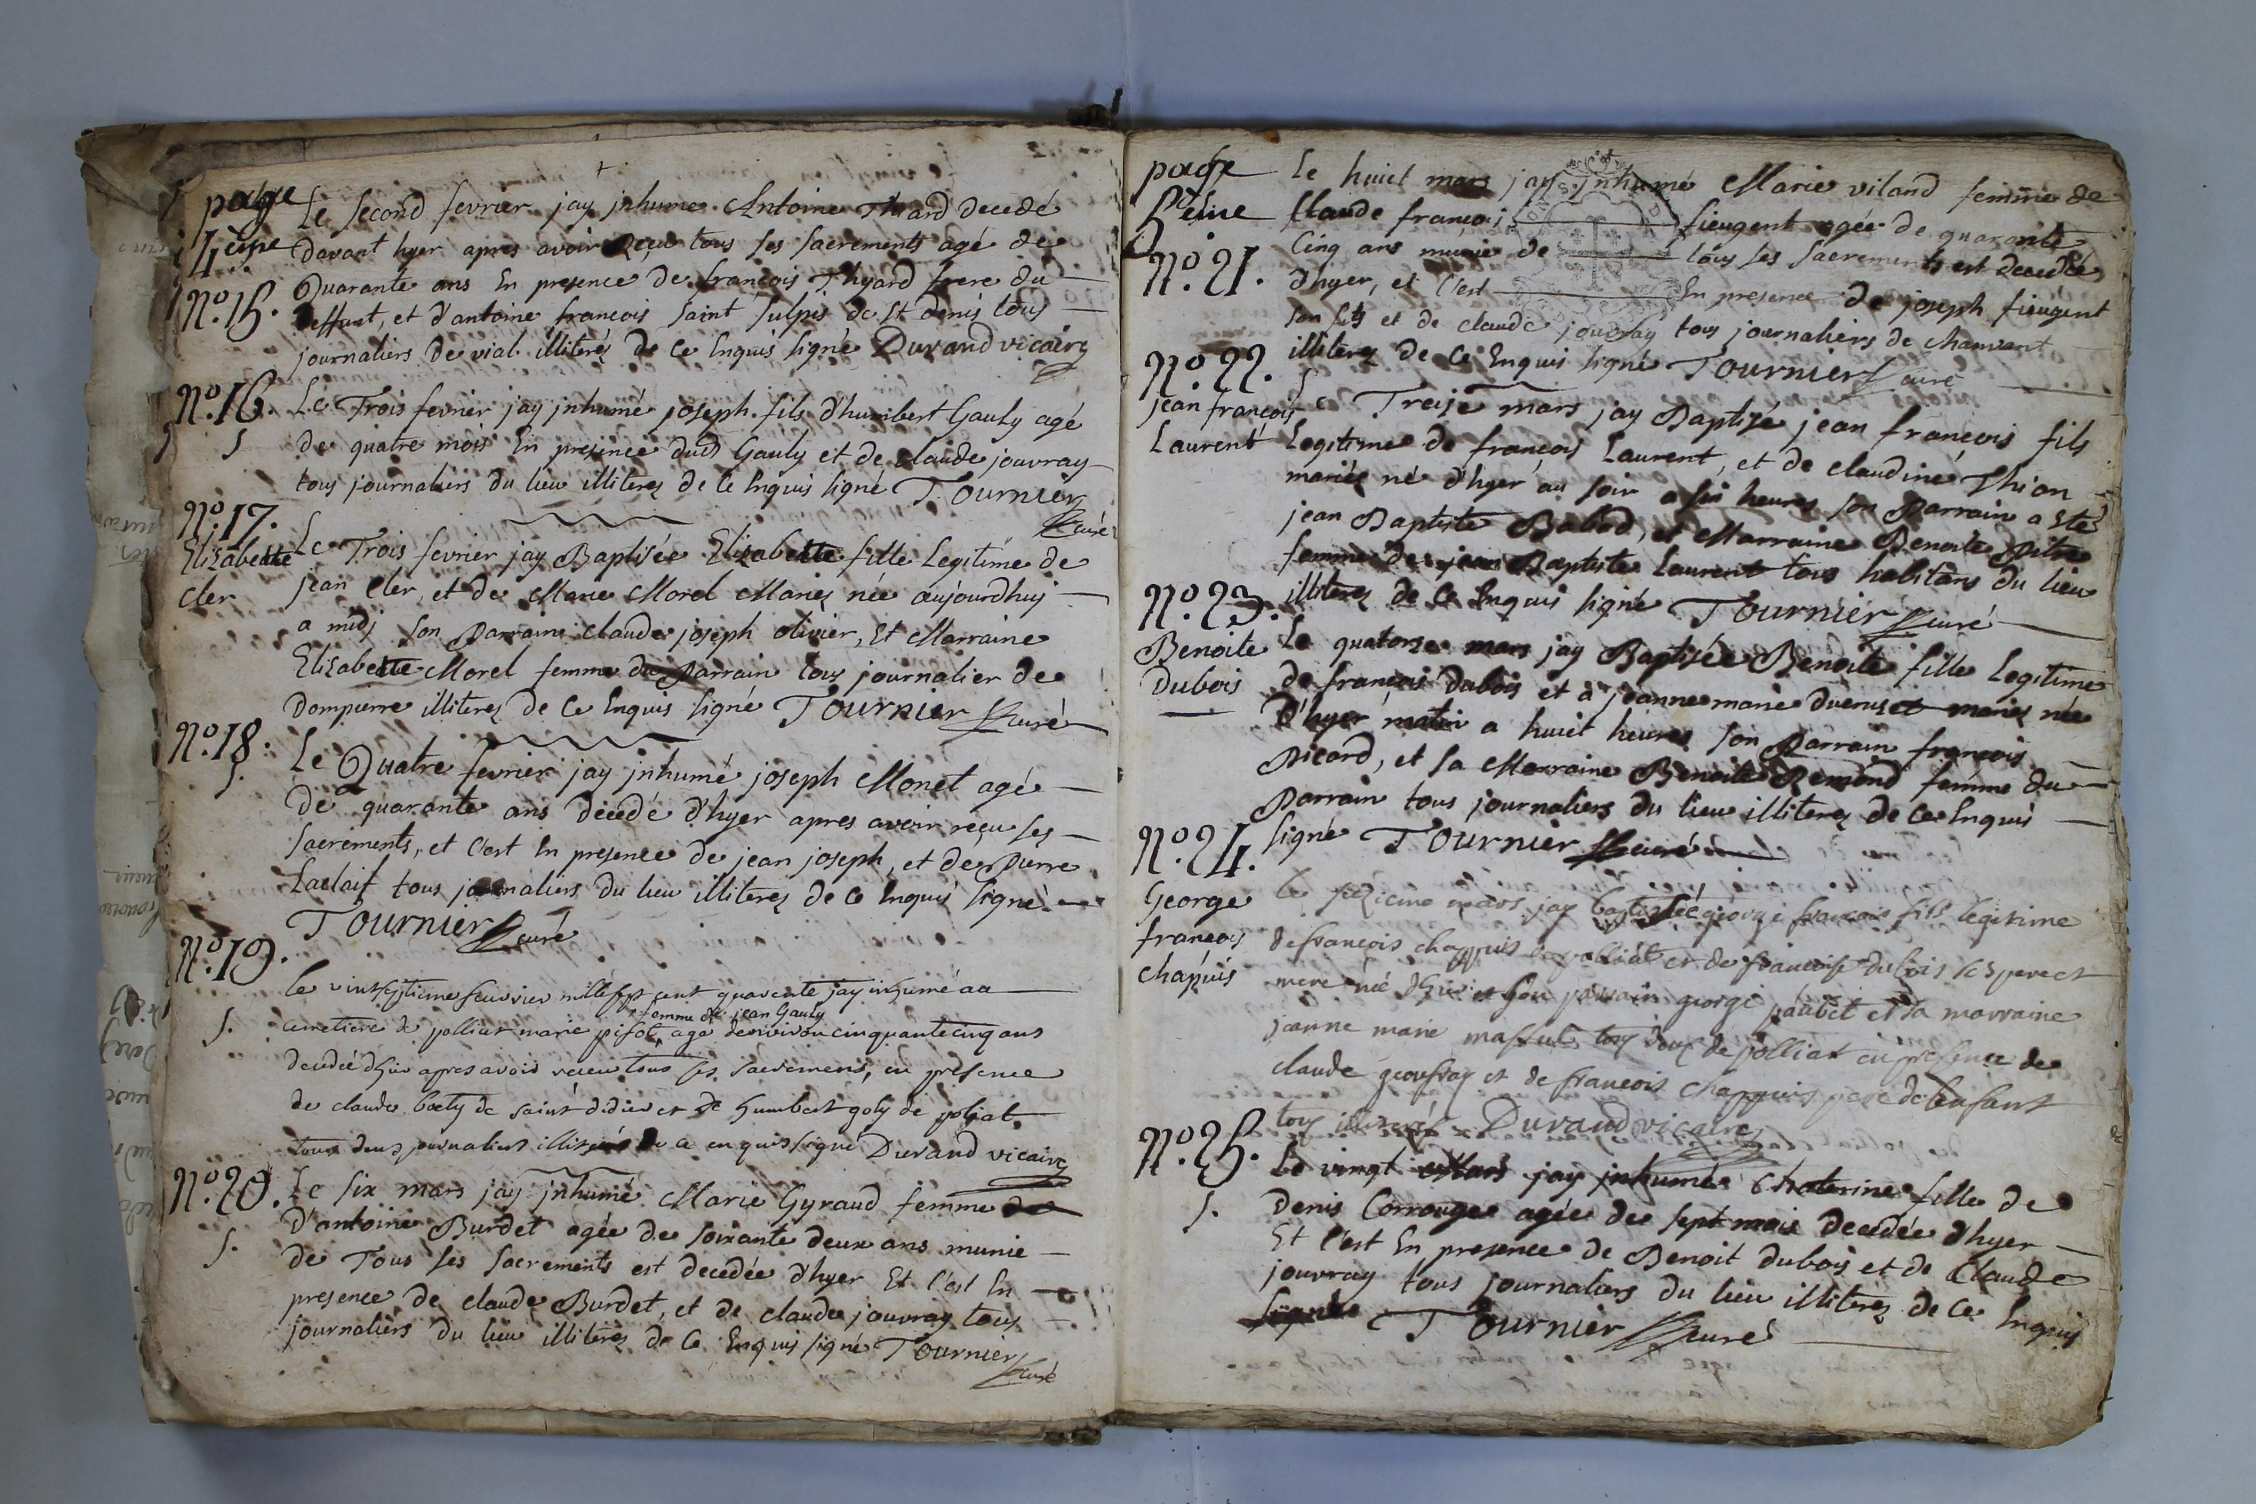 page
4ème
Le second fevrier jay jnhumé Antoine Thiard decedé
davant hyer apres avoir reçu tous ses sacrements agé de
No. 15.
Quarante ans En presence de francois Thyard frere du
deffunt, et d'antoine francois saint sulpis de st denis tous
journaliers de vial illiterez de ce Enquis signé Durand vicaire
No. 16.
Le Trois fevrier jay jnhumé joseph fils d'humbert Gauly agé
S
de quatre mois En presence dud Gauly et de claude jouvray
tous journaliers du lieu illiterez de ce Enquis signé Tournier
curé
No. 17.
Elizabette
cler
Le Trois fevrier jay Baptisée Elizabette fille Legitime de
jean cler, et de Marie Morel Mariez née aujourdhuj
a midj son parrain claude joseph olivier, Et Marraine
Elizabette Morel femme du parrain tous journalier de
Dompierre illiterez de ce Enquis signé Tournier curé
No. 18.
S.
Le Quatre fevrier jay jnhumé joseph Monet agé
de quarante ans decedé d'hyer apres avoir reçu ses
sacrements, et c'est En presence de jean joseph, et de pierre
Laclaif tous journaliers du lieu illiterez de ce Enquis signé
Tournier curé
No. 19.
S.
le vintseptieme feuvrier mille sept cent quarente jay inhumé au
femme de jean Gauly
cemetiere de polliat marie pisot, age denviron cinquante cinq ans
decedée dhier apres avoir receu tous ses sacremens, en presence
de claude boely de saint didier et de humbert goly de poliat
tous deux journaliers illiterés de ce enquis signé Durand vicaire
No. 20.
S.
Le six mars jay jnhumé Marie Gyraud femme
D'antoine Burdet agée de soixante deux ans munie
de Tous ses sacrements est decedée d'hyer Et c'est En
presence de claude Burdet, et de claude jouvray tous
journaliers du lieu illiterez de ce Enquis signé Tournier
curé
page
5eme
No. 21.
Le huict mars jay jnhumé Marie viland femme de
Claude francois fieugent agée de quarante
Cinq ans munie de tous ses sacrements est decedée
d'hyer, et c'est En presence de joseph fieugent
son fils et de claude jouvray tous journaliers de chanvant
illiterez de ce Enquis signé Tournier curé
No. 22.
jean françois
Laurent
Le Treize mars jay Baptizé jean francois fils
Legitime de françois Laurent, et de claudine Thion
mariés né d'hyer au soir a six heures son parrain a Eté
jean Baptiste Babad, et Marraine Benoite pitre
femme de jean Baptiste Laurent tous habitans du lieu
illiterez de ce Enquis signé Tournier curé
No. 23.
Benoite
Dubois
Le quatorze mars jay Baptisée Benoite fille Legitime
de francois Dubois et a jeanne marie mariez née
D'hyer matin a huict heures son parrain francois
picard, et sa Marraine Benoite Remond femme du
parrain tous journaliers du lieu illiterez de ce Enquis
signé Tournier curé
No. 24.
George
françois
chapuis
le sezieme mars jay baptisée george francois fils legitime
de francois chappuis de polliat et de francoise dubois ses pere et
mere née dhier et son parrain george paubet et sa marraine
janne marie tous deux de polliat en presence de
claude geoufray et de francois chappuis pere de lenfant
tous illiterés Durand vicaire
No. 25.
S.
Le vingt Mars jay jnhumé Chaterine fille de
Denis Corrouge agée de sept mois decedée d'hyer
Et c'est En presence de Benoit dubois et de Claude
jouvray tous journaliers du lieu illiterez de ce Enquis
signé Tournier curé